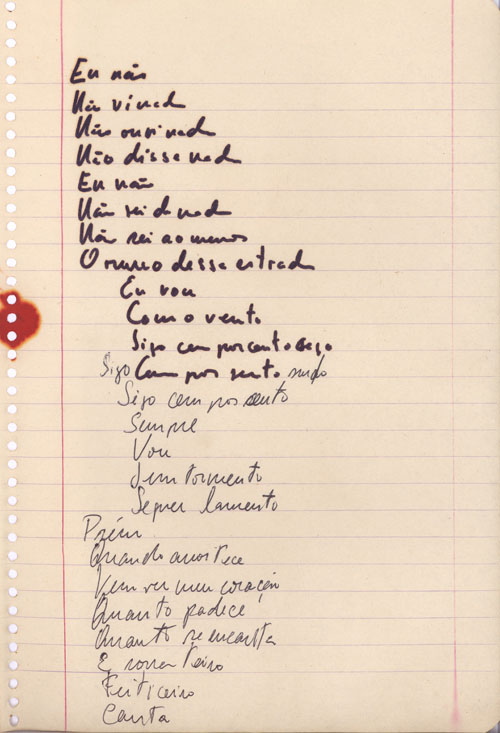 Eu não
Não vi nada
Não ouvi nada
Não disse nada
Eu não
Não sei de nada
Não sei ao menos
O rumo dessa estrada
Eu vou
Como o vento
Sigo cem por cento cego
Sigo Cem por cento surdo
Sigo cem por cento
Sempre
Vou
Sem tormento
Sequer lamento
Porém
Quando anoitece
Vem ver meu coração
Quanto padece
Quanto se encanta
E sorrateiro
Feiticeiro
Canta